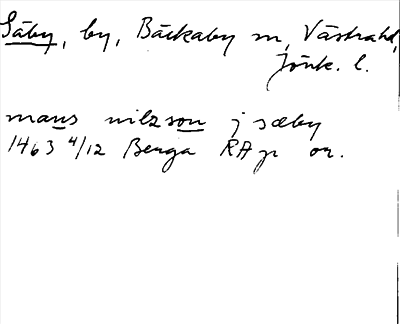 Säby, by, Bäckaby sn, Västra hd,
Jönk. l.
mans nilsson j sæby
1463 4/12 Benga RAp or.